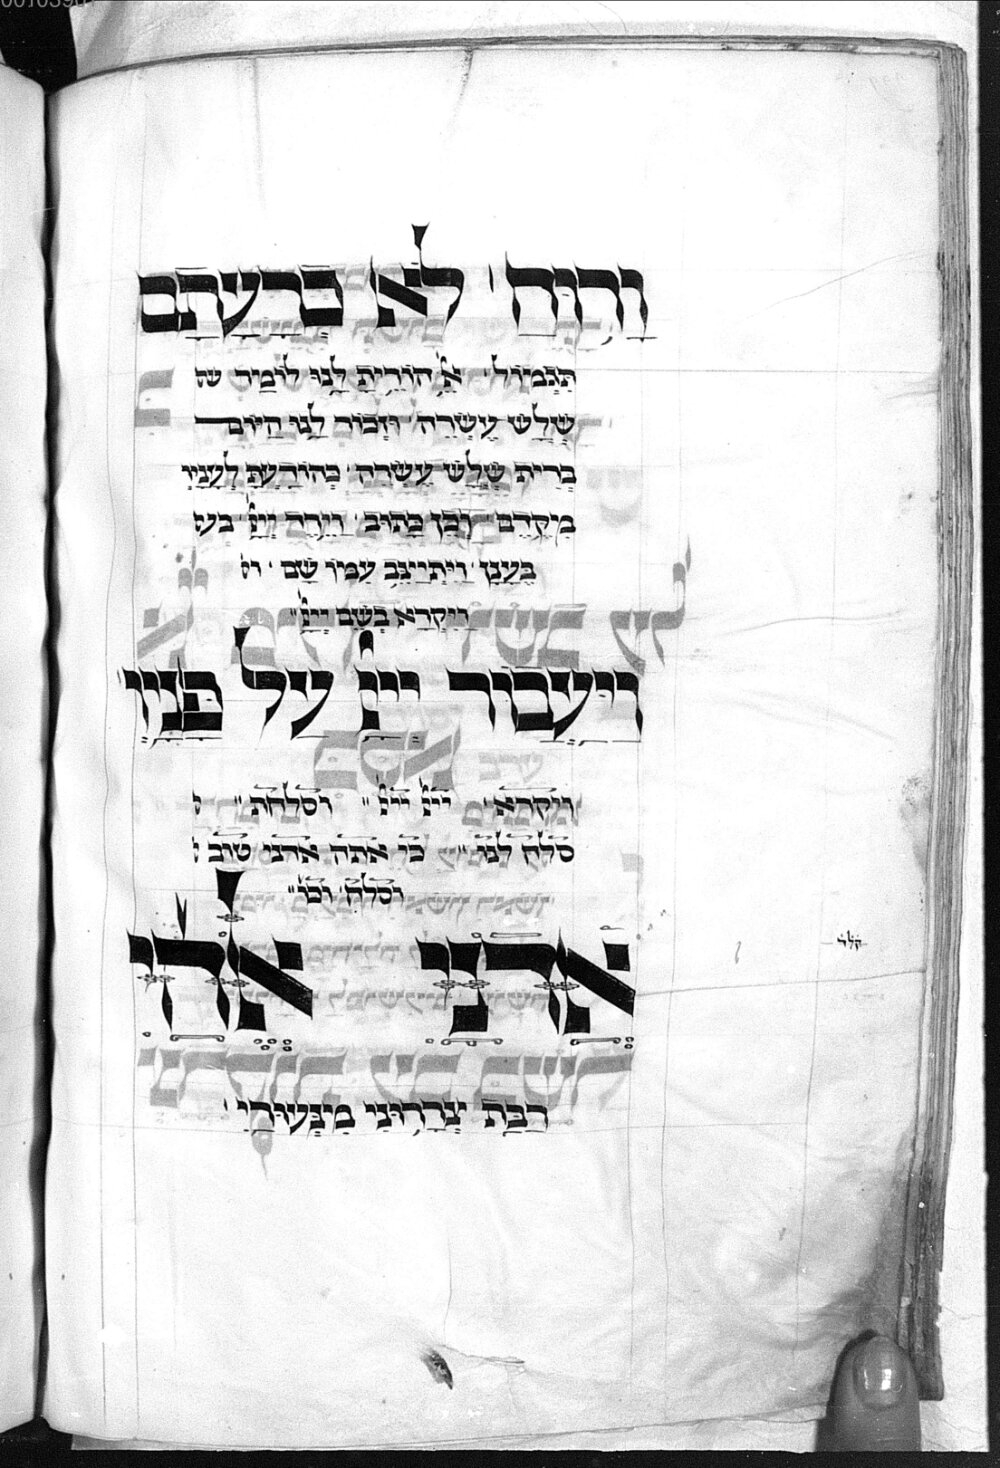 וריוח לא ברעתם
תגמול אל הורית לנו לומר ש
שלש עשרה וזכור לנו היום
ברית שלש עשרה כהודעת לעניו
מקדם וכן כתוב וירד ייי בע
בענן ויתייצב עמו שם ו
ויקרא בשם ייי
ויעבור ייי על פניו
ויקרא ייי ייי וסלחת
סלח לנו כי אתה אדני טוב
וסלח וכו
אדני אדי
רבת צררוני מנעורי